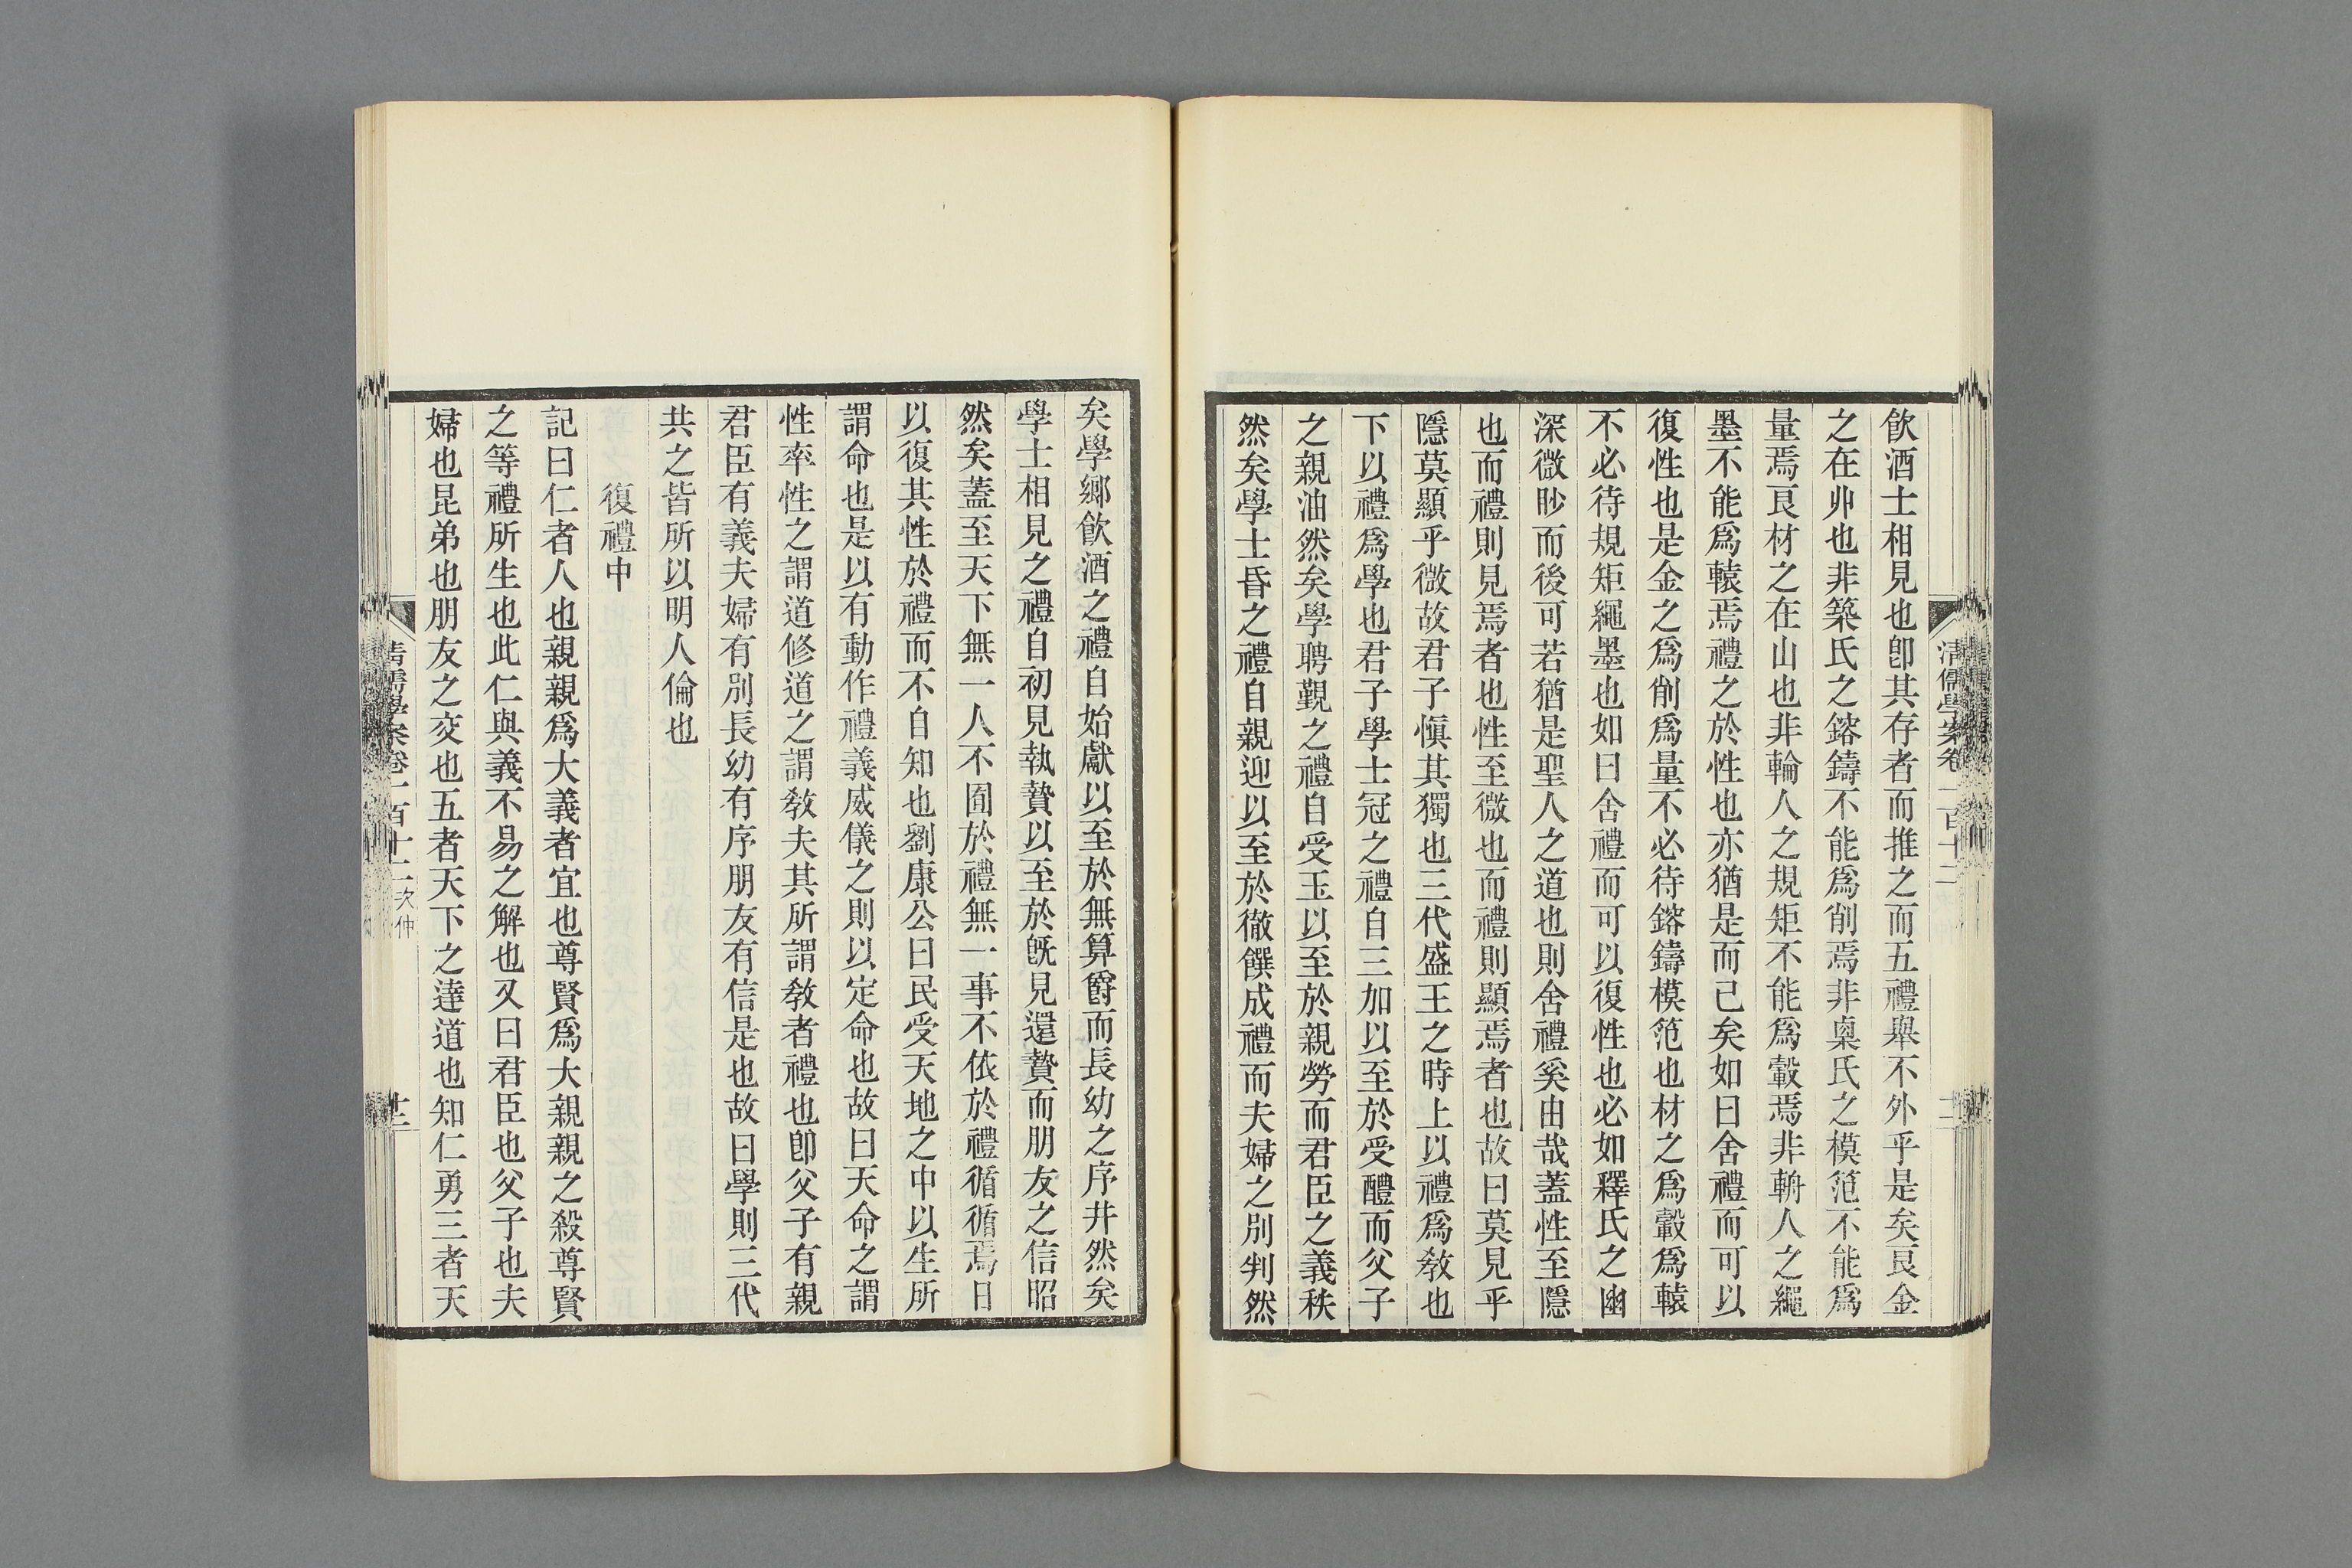 飮酒士相見也卽其存者而推之而五禮舉不外乎是矣良金
之在丱也非築氏之鎔鑄不能爲削焉非㮚氏之模笵不能爲
量焉良材之在山也非輪人之規矩不能爲轂焉非輈人之繩
墨不能爲轅焉禮之於性也亦猶是而已矣如曰舍禮而可以
復性也是金之爲削爲量不必待鎔鑄模笵也材之爲轂爲轅
不必待規矩繩墨也如曰舍禮而可以復性也必如釋氏之幽
深微眇而後可若猶是聖人之道也則舍禮奚由哉蓋性至隱
也而禮則見焉者也性至微也而禮則顯焉者也故曰莫見乎
隱莫顯乎微故君子愼其獨也三代盛王之時上以禮爲敎也
下以禮爲學也君子學士冠之禮自三加以至於受醴而父子
之親油然矣學聘覲之禮自受玉以至於親勞而君臣之義秩
然矣學士昏之禮自親迎以至於徹饌成禮而夫婦之別判然
清儒學案卷一百十二
矣學鄉飮酒之禮自始獻以至於無算爵而長幼之序井然矣
學士相見之禮自初見執贄以至於旣見還贄而朋友之信昭
然矣蓋至天下無一人不囿於禮無一事不依於禮循循焉日
以復其性於禮而不自知也劉康公曰民受天地之中以生所
謂命也是以有動作禮義威儀之則以定命也故曰天命之謂
性率性之謂道修道之謂敎夫其所謂敎者禮也卽父子有親
君臣有義夫婦有別長幼有序朋友有信是也故曰學則三代
共之皆所以明人倫也
復禮中
記曰仁者人也親親爲大義者宜也尊賢爲大親親之殺尊賢
之等禮所生也此仁與義不易之解也又曰君臣也父子也夫
婦也昆弟也朋友之交也五者天下之達道也知仁勇三者天
清儒學案卷一百十二 次仲